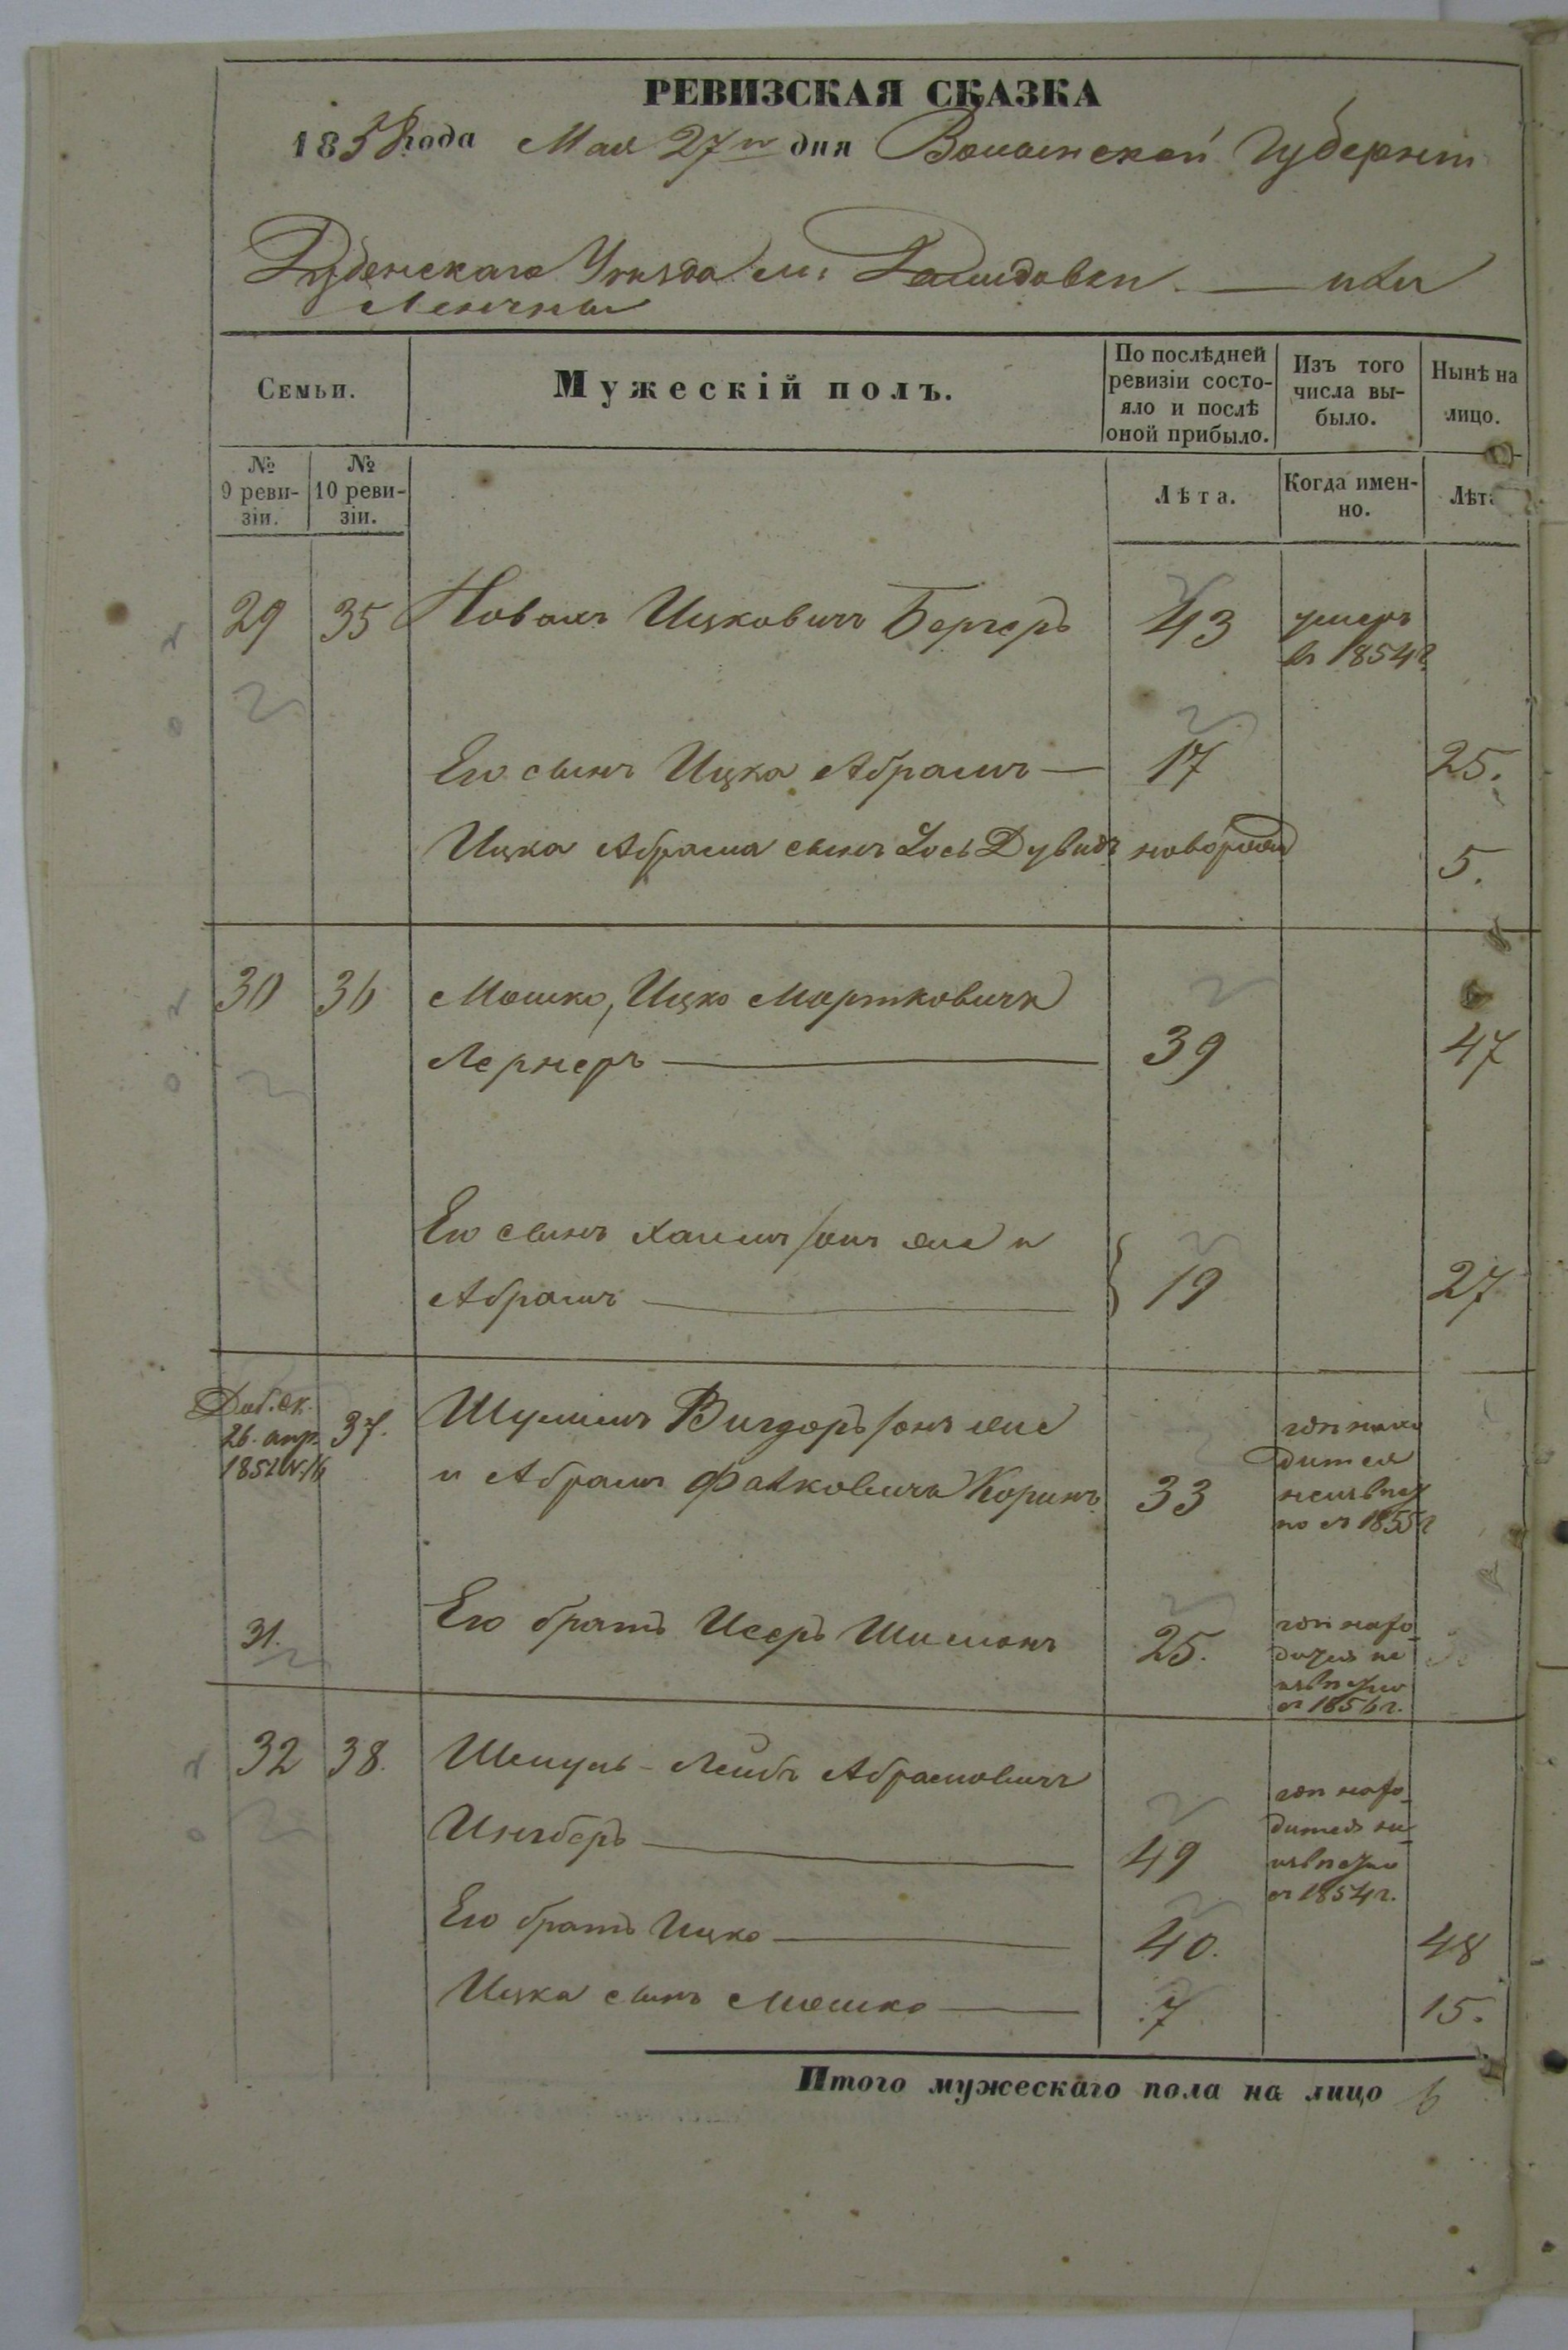 РЕВИЗСКАЯ СКАЗКА
1858 года Мая 27го дня Волынской Губерніи
Дубенскаго Уѣзда м. Демидовки — или
Семьи.
Мужескій полъ.
По послѣдней ревизіи состояло и послѣ оной прибыло.
Изъ того числа выбыло.
Нынѣ на лицо.
№ 9 ревизіи.
№ 10 ревизіи.
Лѣта.
Когда именно.
Лѣта
29 35 Новахъ Ицковичъ Бергеръ 43 умеръ
въ 1854г.
Его сынъ Ицка Абрамъ — 17 25.
Ицка Абрама сынъ Іось Дувидъ новорожд 5.
30 36 Мошко, Ицко Мортковичъ
Лернеръ — 39 47
Его сынъ Хаимъ /онъ же и
Абрамъ — 19 27
Доб. ск.
26. апр.
1852 №16
37. Шулимъ Вигдоръ /онъ же
и Абрамъ Фалковичъ Коринъ 33
гдѣ нахо
дится
неизвѣст
но съ 1855г
31. Его братъ Исеръ Шимонъ 25.
гдѣ нахо-
дится не
извѣстно
съ 1856г.
32 38. Шмуль-Лейбъ Абрамовичъ
Ингберъ — 49
гдѣ нахо-
дится не-
извѣстно
съ 1854г.
Его братъ Ицко — 40. 48
Ицка сынъ Мошко — 7 15.
Итого мужескаго пола на лицо 6